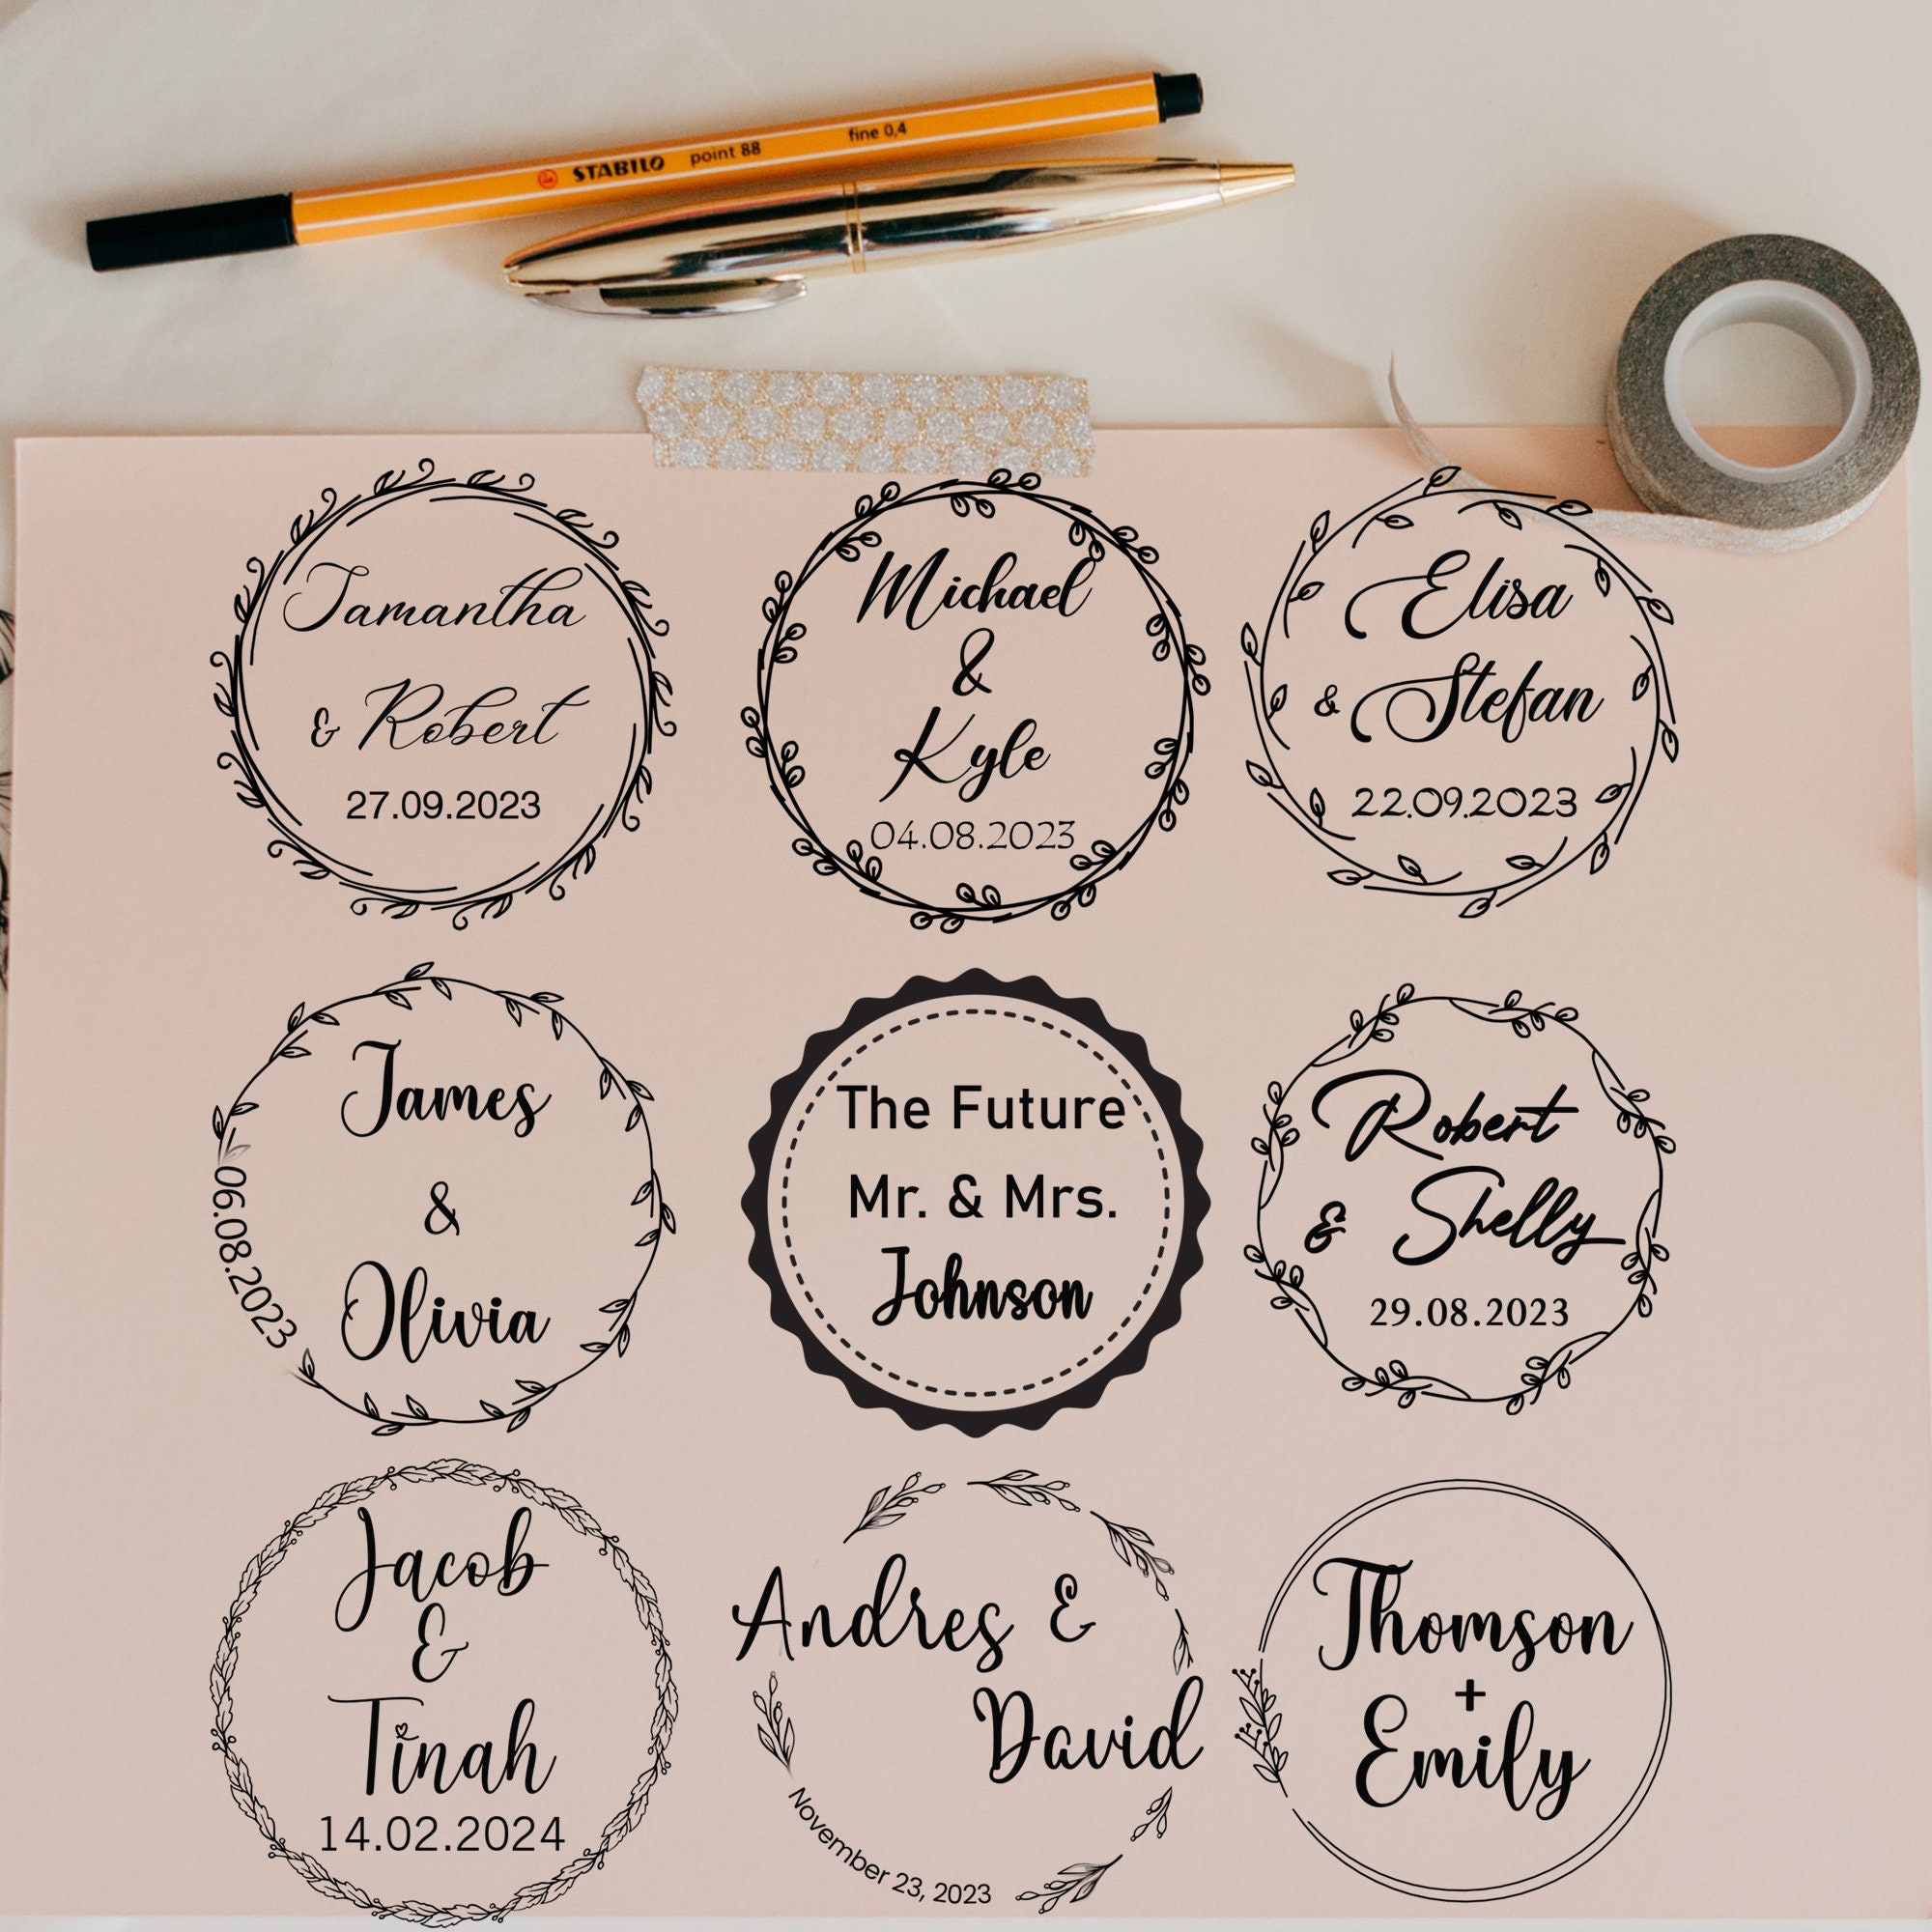 STABILO point 88 fine 0,4
Samantha
& Robert
27.09.2023
Michael
&
Kyle
04.08.2023
Elisa
& Stefan
22.09.2023
James
&
Olivia
06.08.2023
The Future
Mr. & Mrs.
Johnson
Robert
& Shelly
29.08.2023
Jacob
&
Tinah
14.02.2024
Andres &
David
November 23, 2023
Thomson
+
Emily